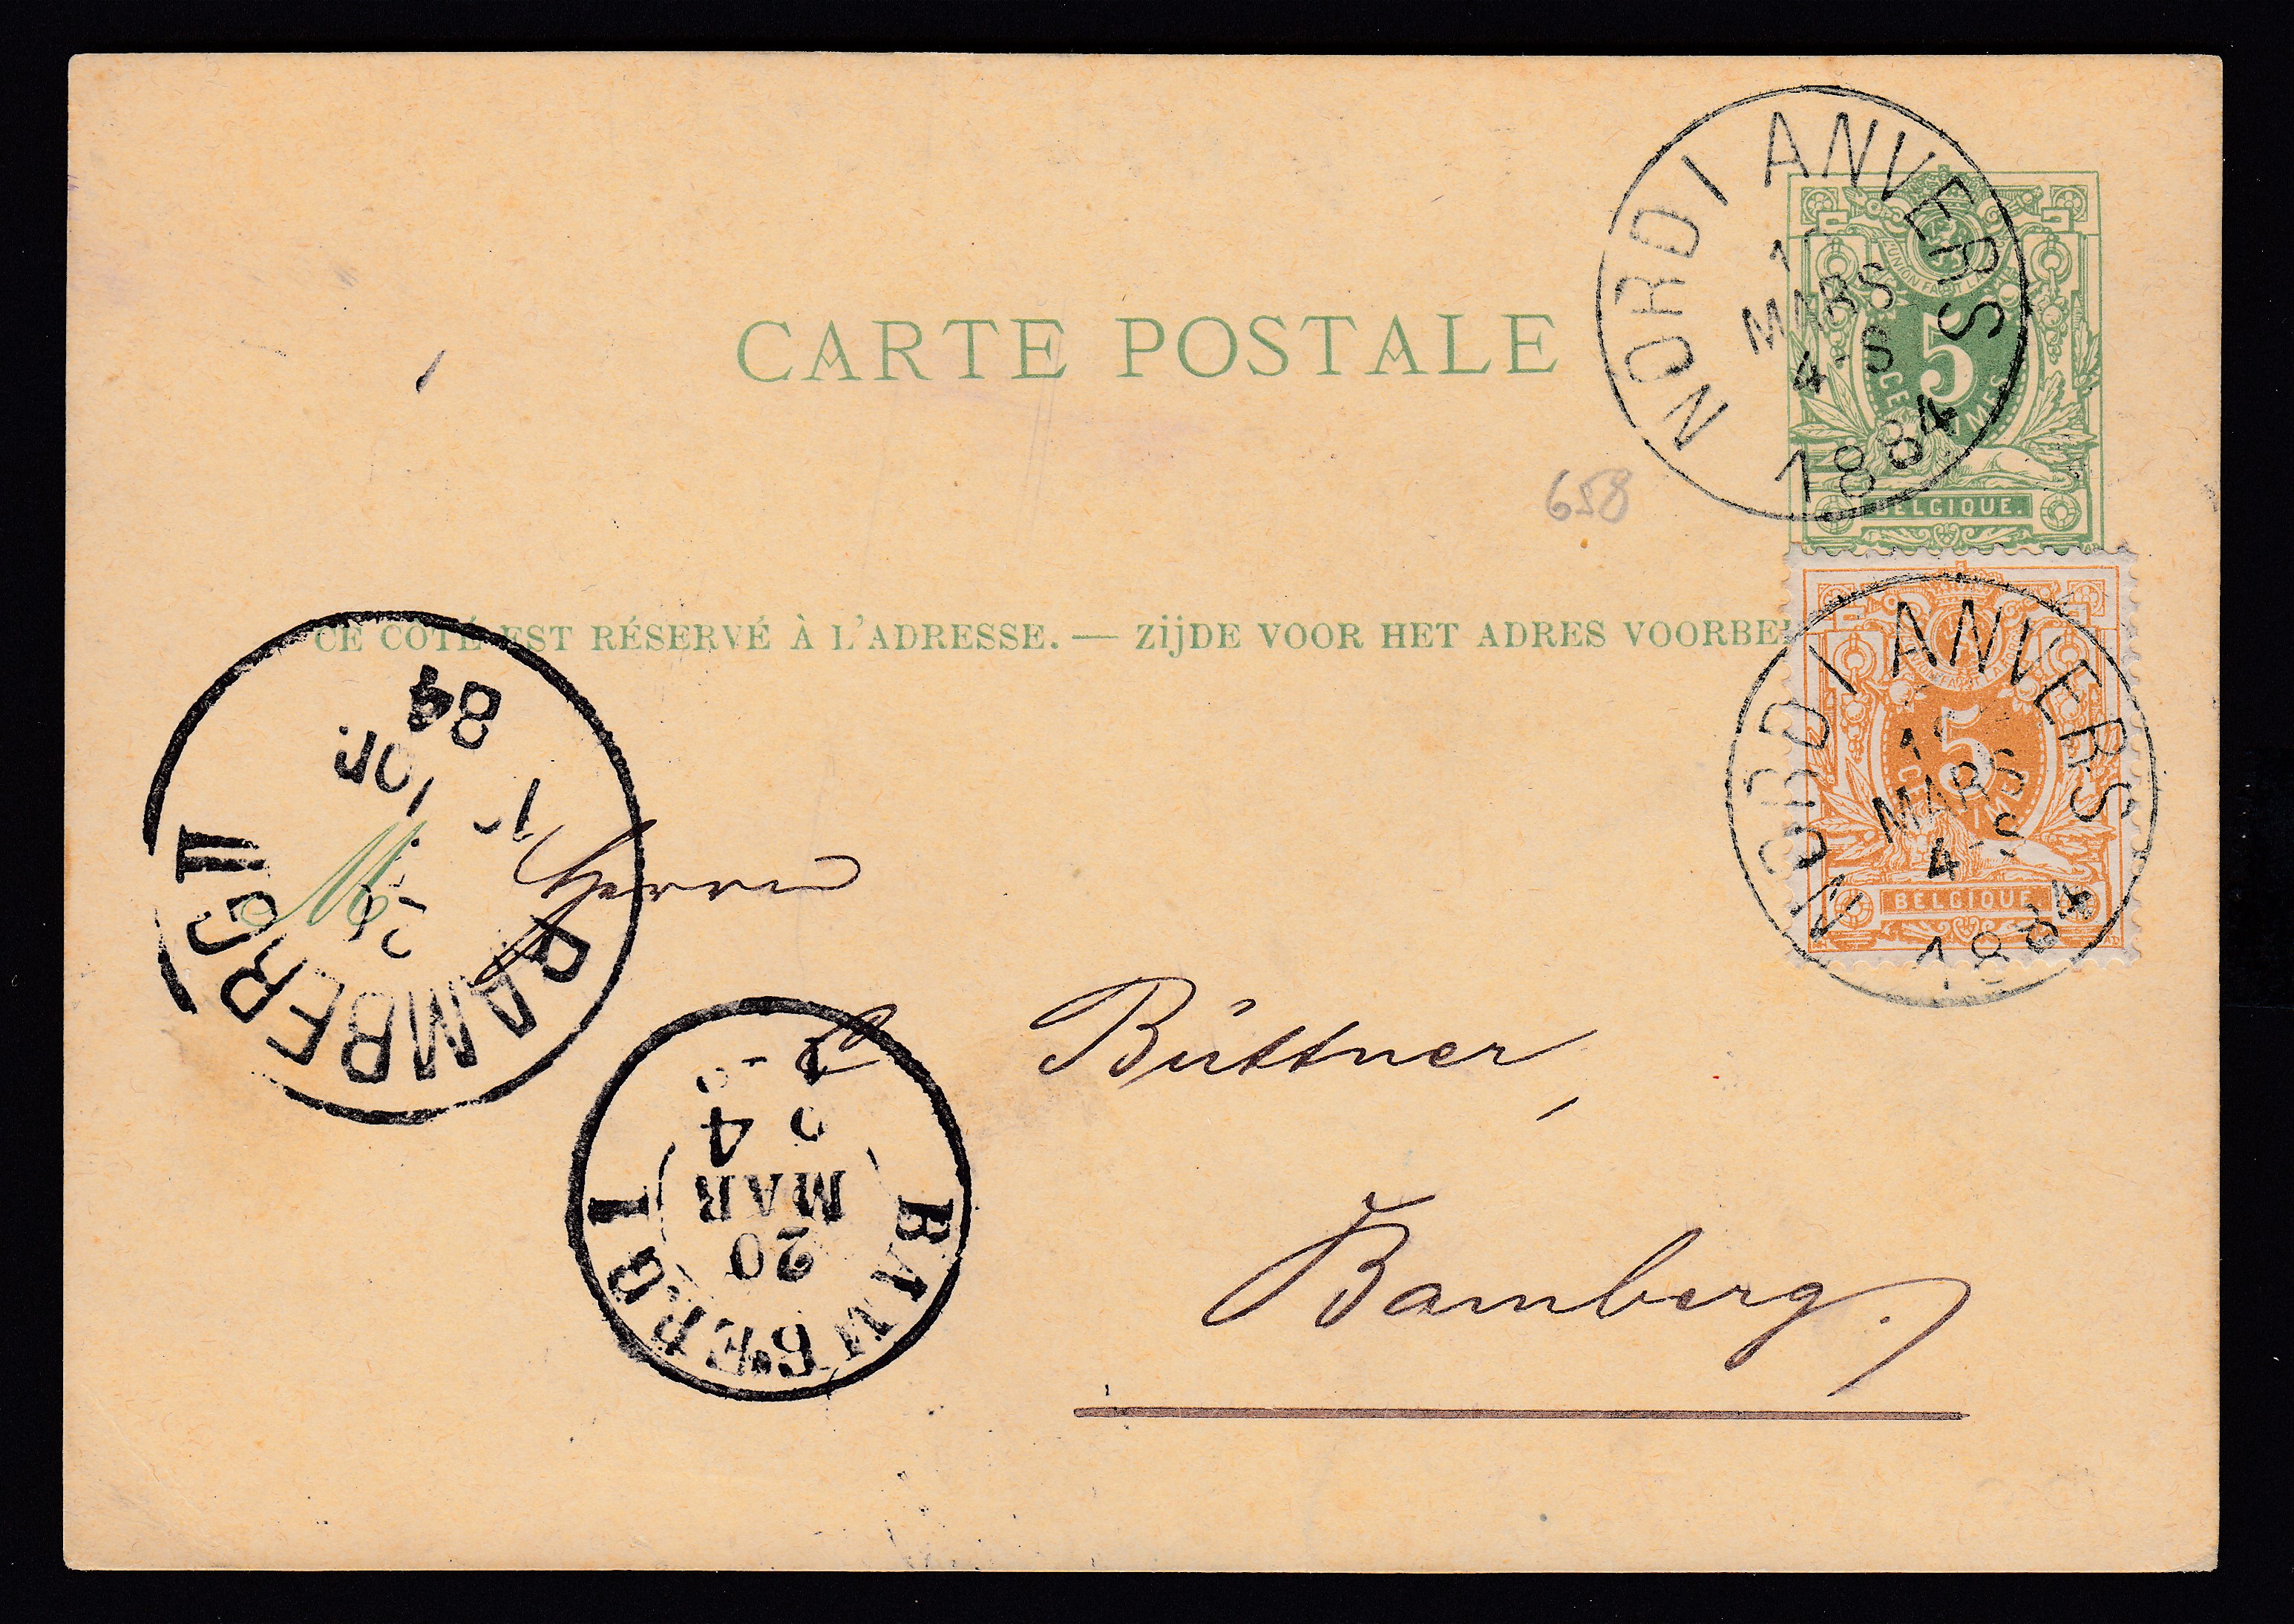 CARTE POSTALE
NORD I ANVERS
MARS
4-S
1884
L'UNION FAIT LA
5
BELGIQUE.
658
CE CÔTÉ EST RÉSERVÉ À L'ADRESSE. — ZijDE VOOR HET ADRES VOORBE
NORD I ANVERS
MARS
4-S
1884
5
BELGIQUE
BAMBERG II
84
M
Herrn
Büttner,
BAMBERG I
20
MAR
4
Bamberg.